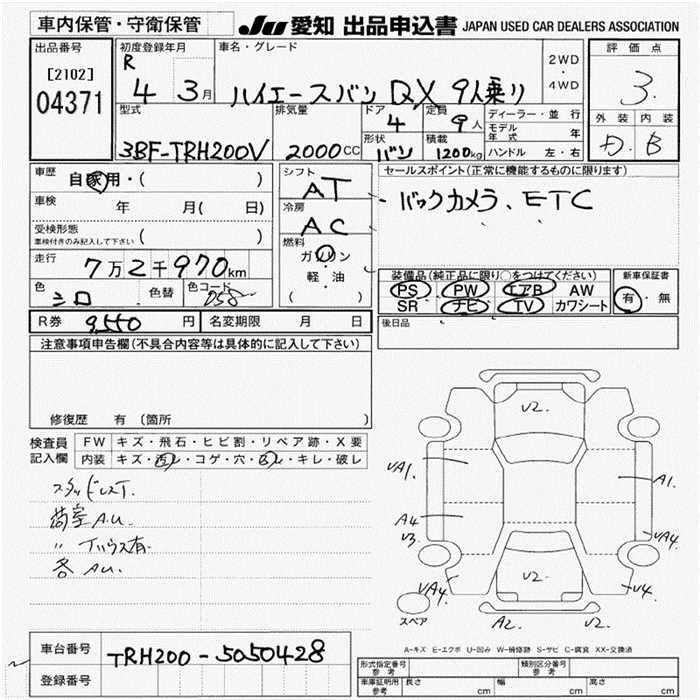 車内保管・守衛保管
JU 愛知 出品申込書 JAPAN USED CAR DEALERS ASSOCIATION
出品番号
[2102]
04371
初度登録年月
R
4 3月
車名・グレード
ハイエースバン DX 9人乗り
2WD
・
4WD
評価点
3.
外装 内装
D. B
型式
3BF-TRH200V
排気量
2000cc
ドア
4
定員
9人
形状
バン
積載
1200kg
ディーラー・並行
モデル年式 年
ハンドル 左・右
車歴
自家用・( )
車検
年 月( 日)
受検形態
車検付きのみ記入して下さい ( )
走行
7万2千970km
色
シロ
色替
色コード
058
シフト
AT
冷房
AC
燃料
ガソリン
軽・油
( )
セールスポイント(正常に機能するものに限ります)
バックカメラ、ETC
装備品(純正品に限り○をつけてください)
PS PW エアB AW
SR ナビ TV カワシート
新車保証書
有・無
R券 9,550円 名変期限 月 日
後日品
注意事項申告欄(不具合内容等は具体的に記入して下さい)
修復歴 有 〔箇所 〕
検査員
記入欄
FW キズ・飛石・ヒビ割・リペア跡・X要
内装 キズ・汚レ・コゲ・穴・凹ミ・キレ・破レ
スタッドレスT.
荷室A.U.
〃 有.
各 AU.
V2.
VA1. A1.
A4
V3.
VA4.
V2. V2.
VA4. V4.
スペア
A2. V2.
A-キズ E-エクボ U-凹み W-補修跡 S-サビ C-腐食 XX-交換済
車台番号
TRH200-5050428
登録番号
形式指定番号
参考
類別区分番号
参考
車庫証明用
参考
長さ cm 幅 cm 高さ cm